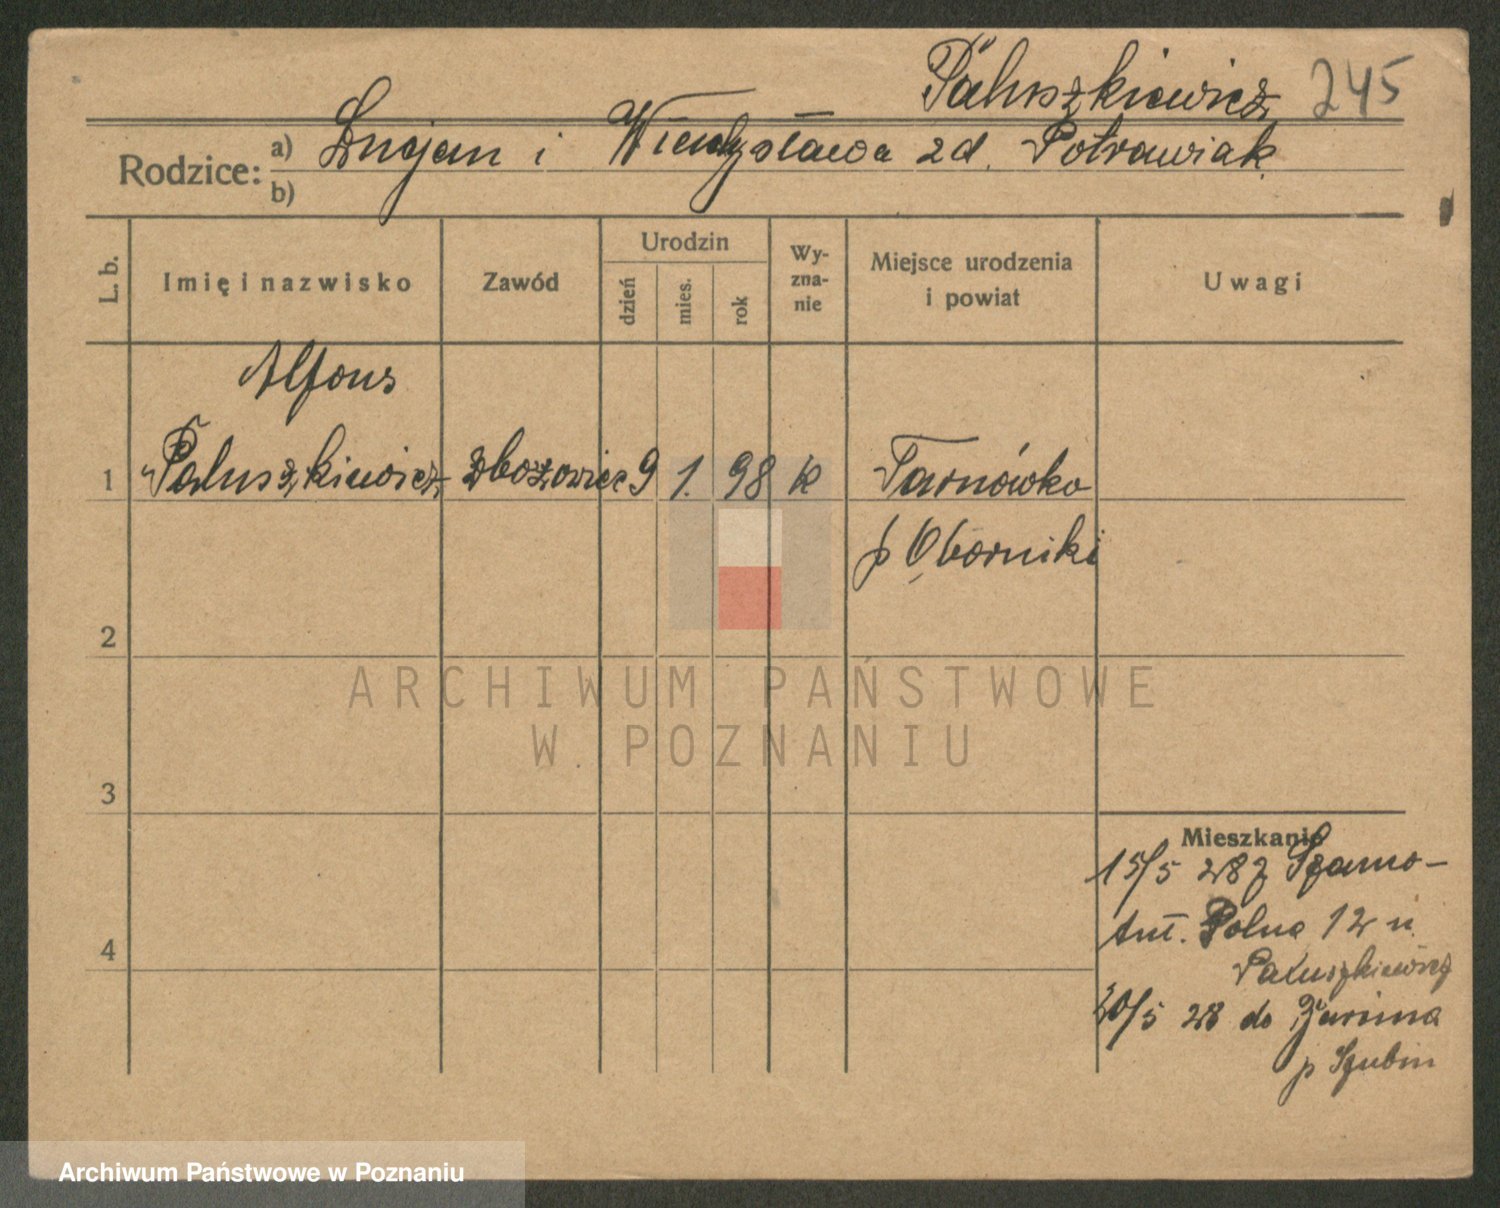 Paluszkiewicz 245
Rodzice: a) Lucjan i Władysława zd. Potrawiak
b)
L. b. Imię i nazwisko Zawód Urodzin dzień mies. rok Wyznanie Miejsce urodzenia i powiat Uwagi
Alfons
1 Paluszkiewicz zbożowiec 9 1. 98 k Tarnówko
p Oborniki
2
ARCHIWUM PAŃSTWOWE
W POZNANIU
3
Mieszkanie
15/5 28 z Szamo-
tuł. Polna 12 u
4
Paluszkiewicz
30/5 28 do
p Szubin
Archiwum Państwowe w Poznaniu